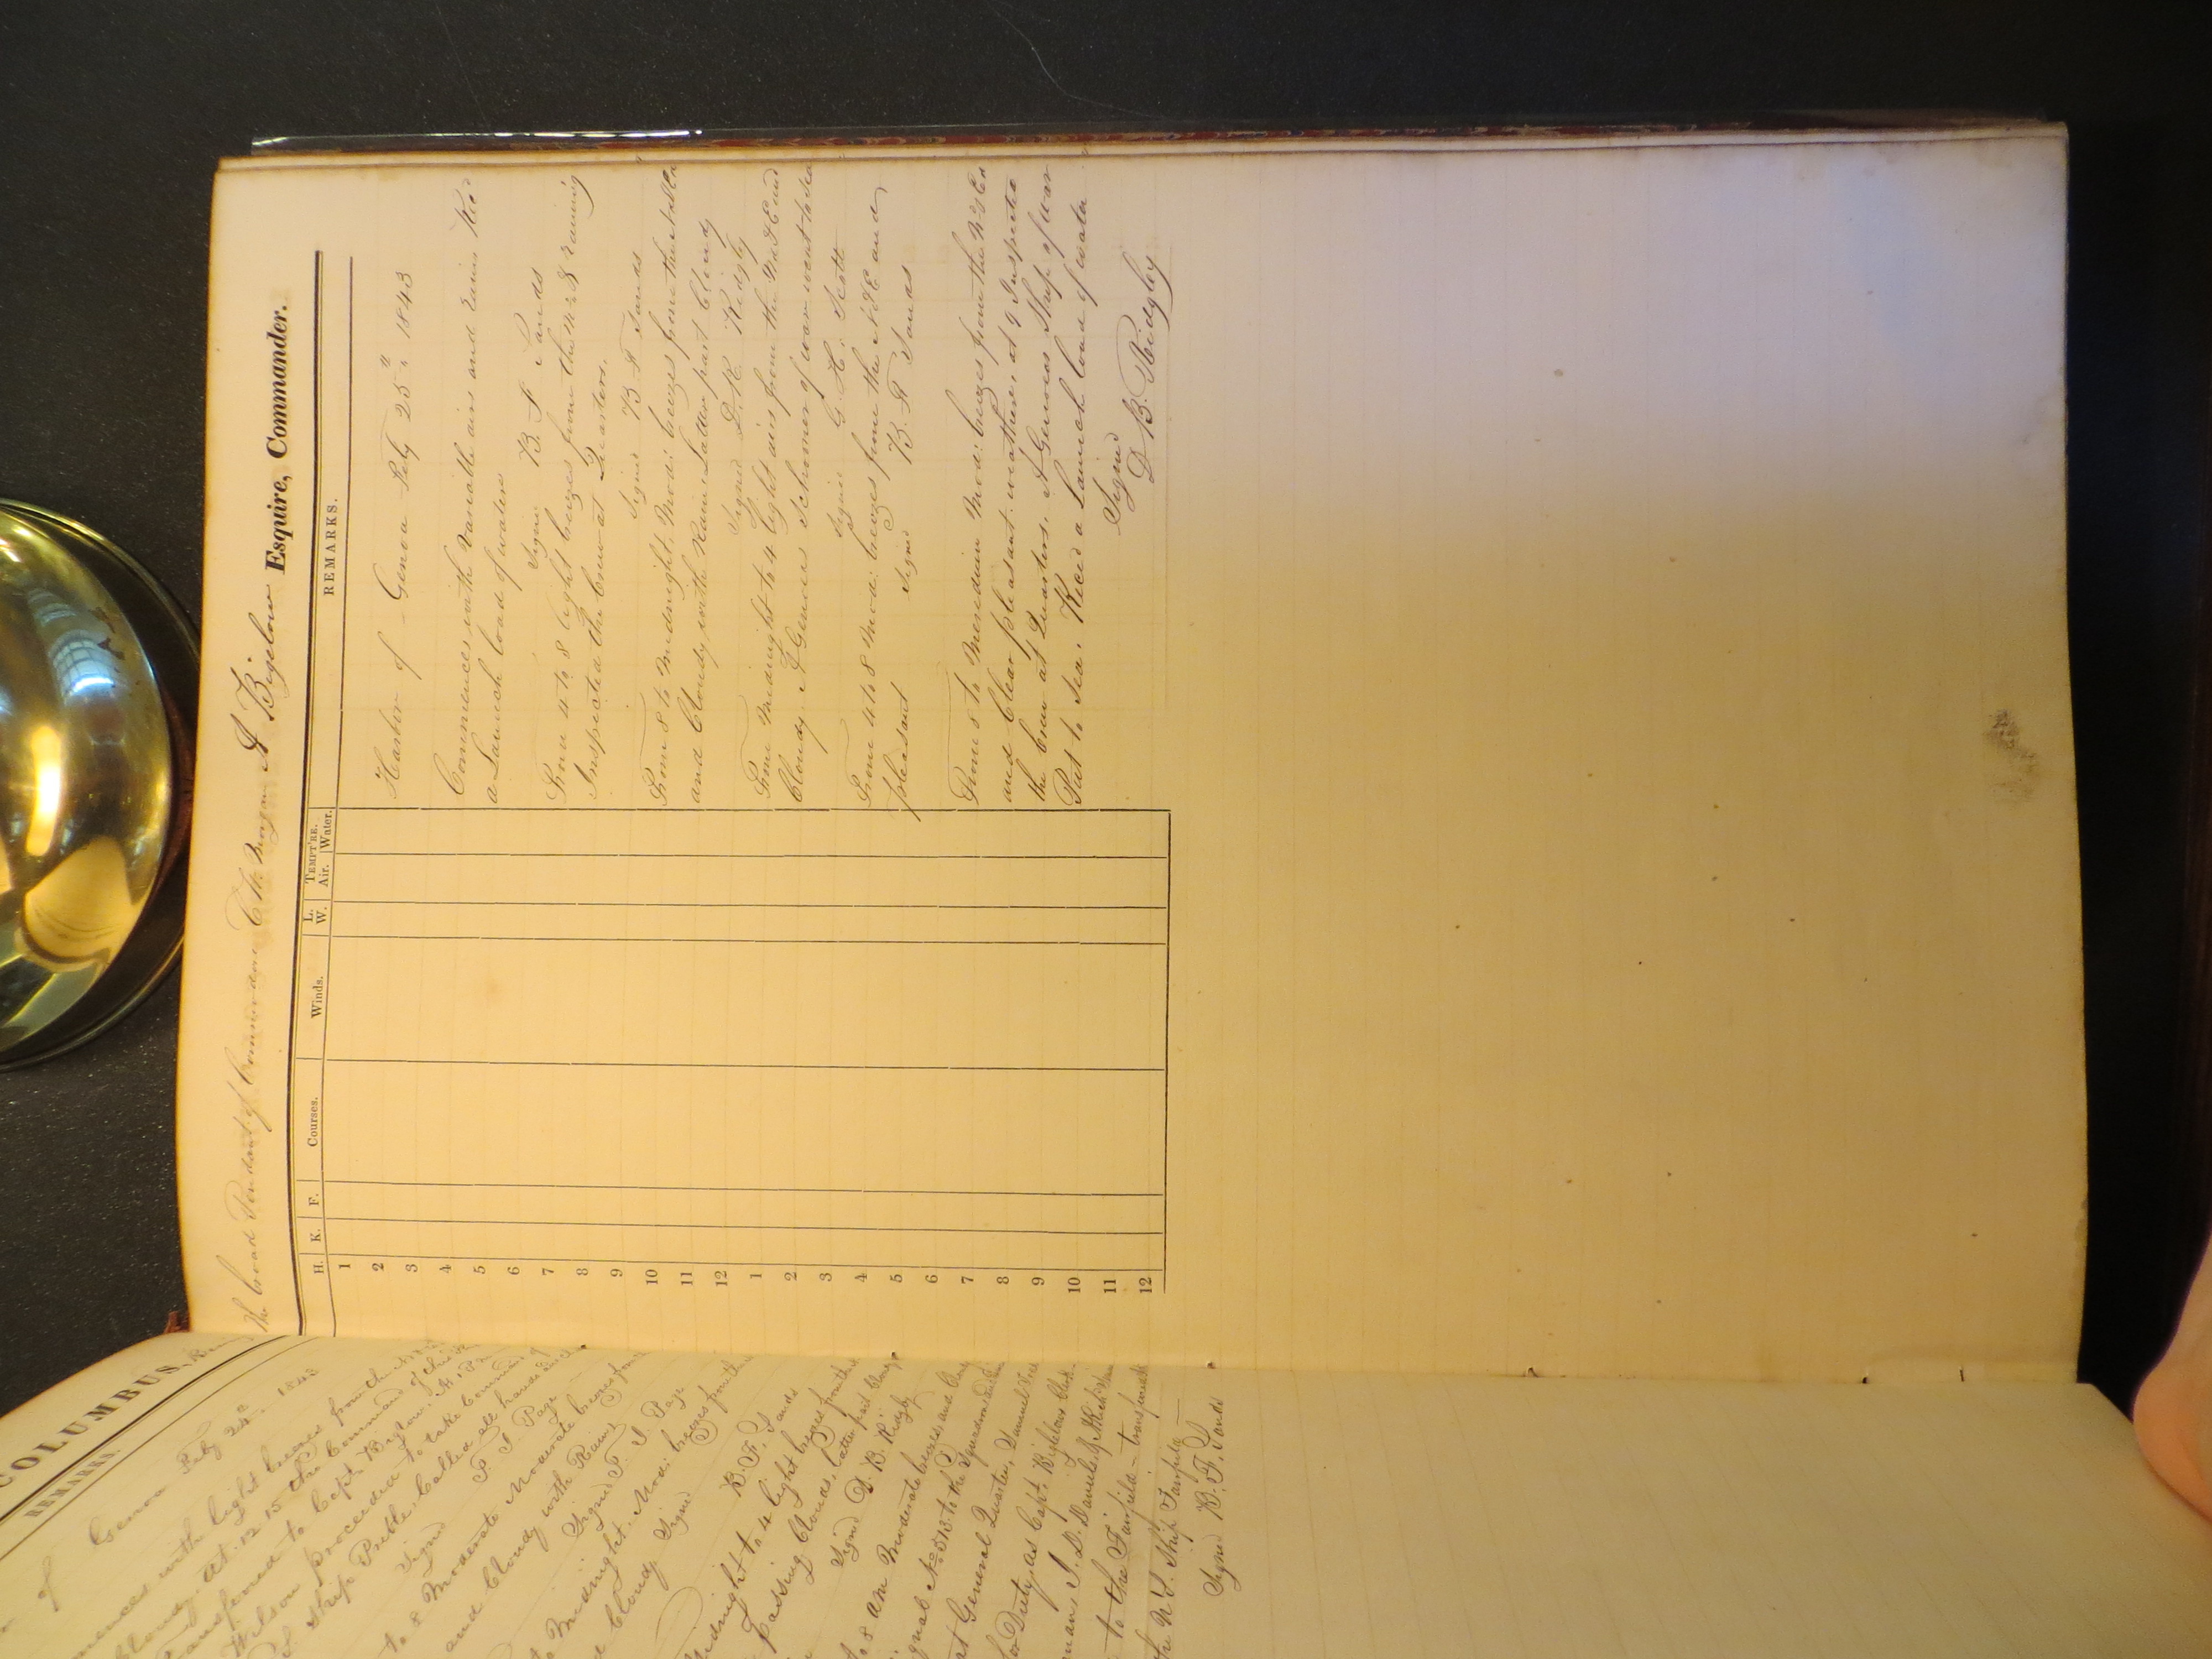 COLUMBUS,
REMARKS.
of Genoa Feby 24th 1843
mences with light breezes from the
Cloudy. At 12.15 the Command of this
transferred to Capt Bigelow.
Wilson proceeded to take Command of
Ship Preble, Called all hands
Signed P. I. Page
to 8 Moderate breezes from
and Cloudy with Rain
Signed P. I. Page
to Midnight. Mod: breezes from the
Cloudy
Signed B. F. Sands
Midnight to 4 light breezes from the
passing Clouds, latter part Cloudy
Signed D. B. Ridgely
to 8 AM Moderate breezes and
signal No 513 to the Squadron
at General Quarters, Samuel
for Duty, as Capt. Bigelows Clerk.
to the Fairfield - transferred
the U. S. Ship Fairfield
Signed B. F. Sands
The broad Pendant of Commodore C. W. Morgan A Bigelow Esquire, Commander.
H. K. F. Courses. Winds. L. W. TEMPT'RE. Air. Water. REMARKS.
1
2 Harbor of Genoa Feby 25th 1843
3
4 Commences with variable airs and rain Recd
5 a Launch load of water
6 Signed B. F. Sands
7 From 4 to 8 light breezes from the N & E raining
8 Inspected the Crew at Quarters.
9 Signed B F Sands
10 From 8 to Midnight, Mod: breezes from the N & E
11 and Cloudy with Rain Latter part Cloudy
12 Signed D. B. Ridgely
1 From Midnight to 4 light airs from the N & E and
2 Cloudy. A Genoese Schooner of war went to sea
3 Signed G. H. Scott
4 From 4 to 8 Mod: breezes from the N & E and
5 pleasant Signed B. F. Sands
6
7 From 8 to Meredian Mod: breezes from the N & E
8 and Clear pleasant weather, at 9 Inspected
9 the Crew at Quarters. A Genoese Ship of war
10 Put to Sea. Recd a Launch load of water
11 Signed
12 D B. Ridgely